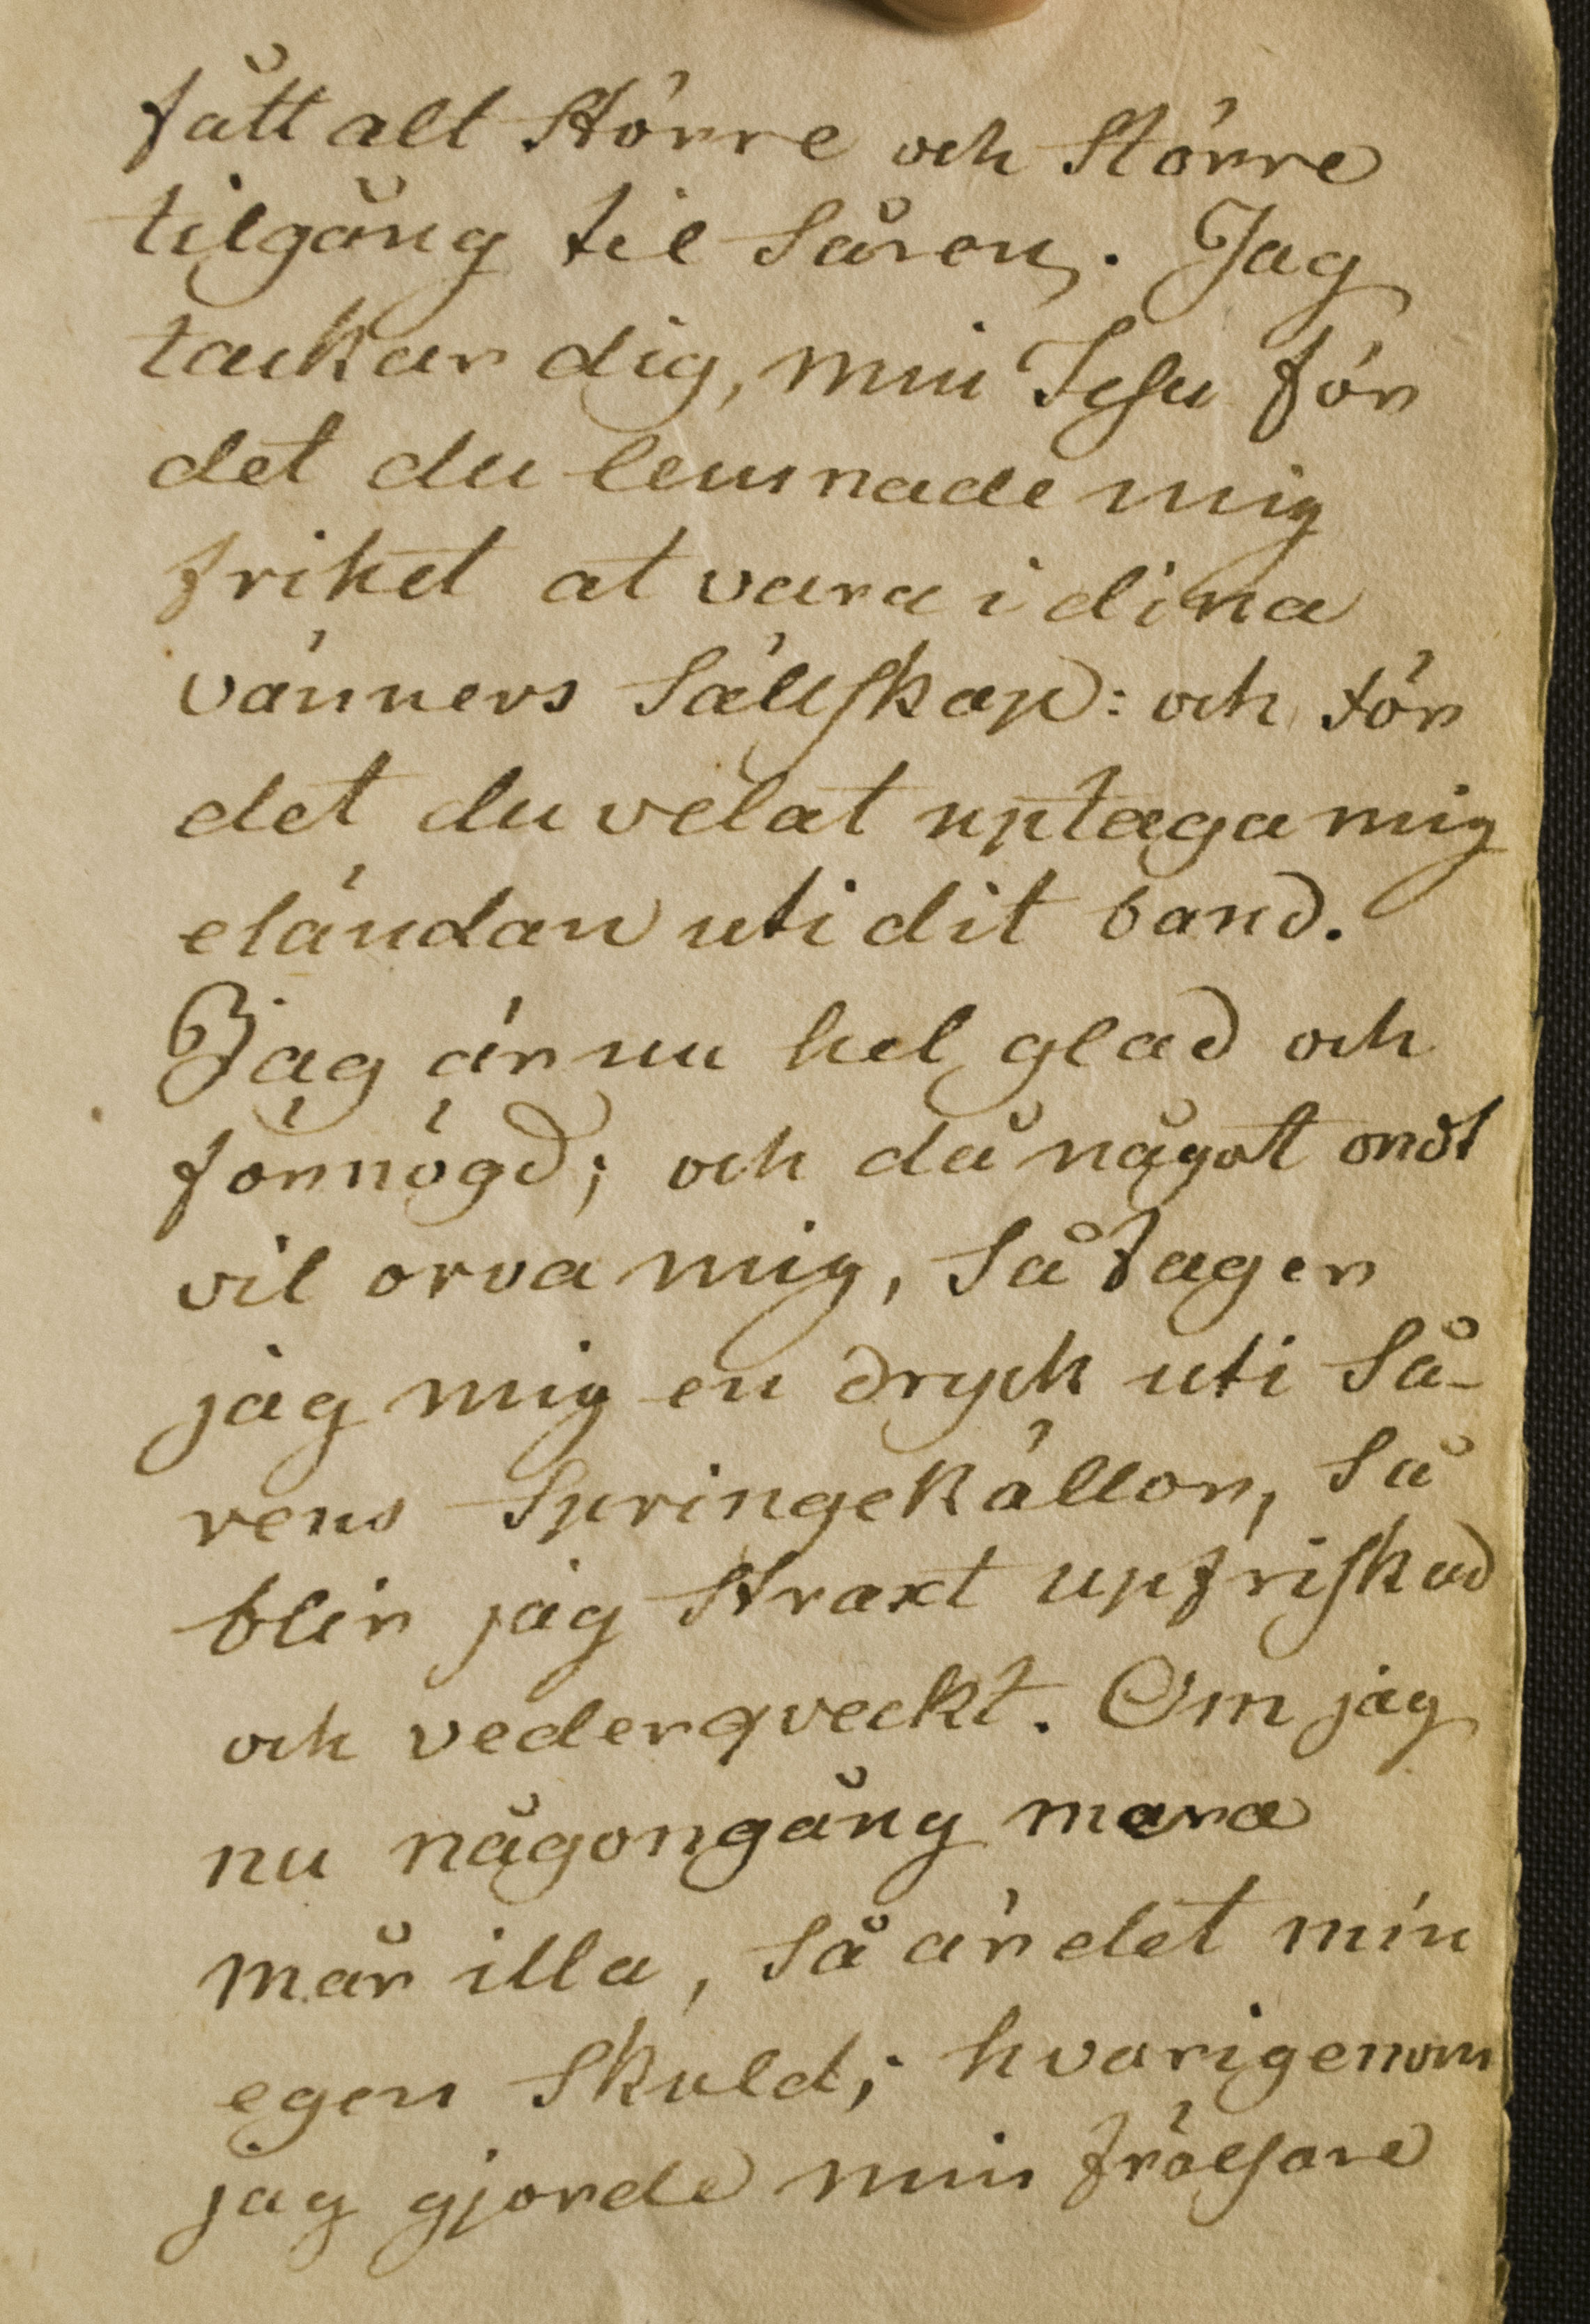 fått alt större och större
tilgång til såren. Jag
tackar dig, min Jesu för
det du lemnade mig
frihet at vara i dina
vänners sällskap: och för
det du velat uptaga mig
eländan uti dit band.
Jag är nu hel glad och
förnögd; och då något ondt
vil orva mig, så tager
jag mig en dryck uti så-
rens springekällor, så
blir jag straxt upfriskad
och vederqveckt. Om jag
nu någongång mera
mår illa, så är det min
egen skuld; hvarigenom
jag gjorde min frälsare